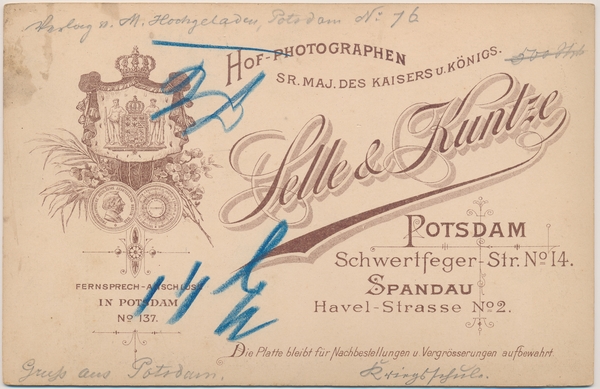 Verlag v. M. Hochgeladen, Potsdam No 76
HOF-PHOTOGRAPHEN
SR. MAJ. DES KAISERS U. KÖNIGS.
Selle & Kuntze
POTSDAM
Schwertfeger-Str. No 14.
SPANDAU
Havel-Strasse No 2.
FERNSPRECH-ANSCHLUSS
IN POTSDAM
No 137.
Die Platte bleibt für Nachbestellungen u. Vergrösserungen aufbewahrt.
Gruß aus Potsdam.
Kriegsschule.